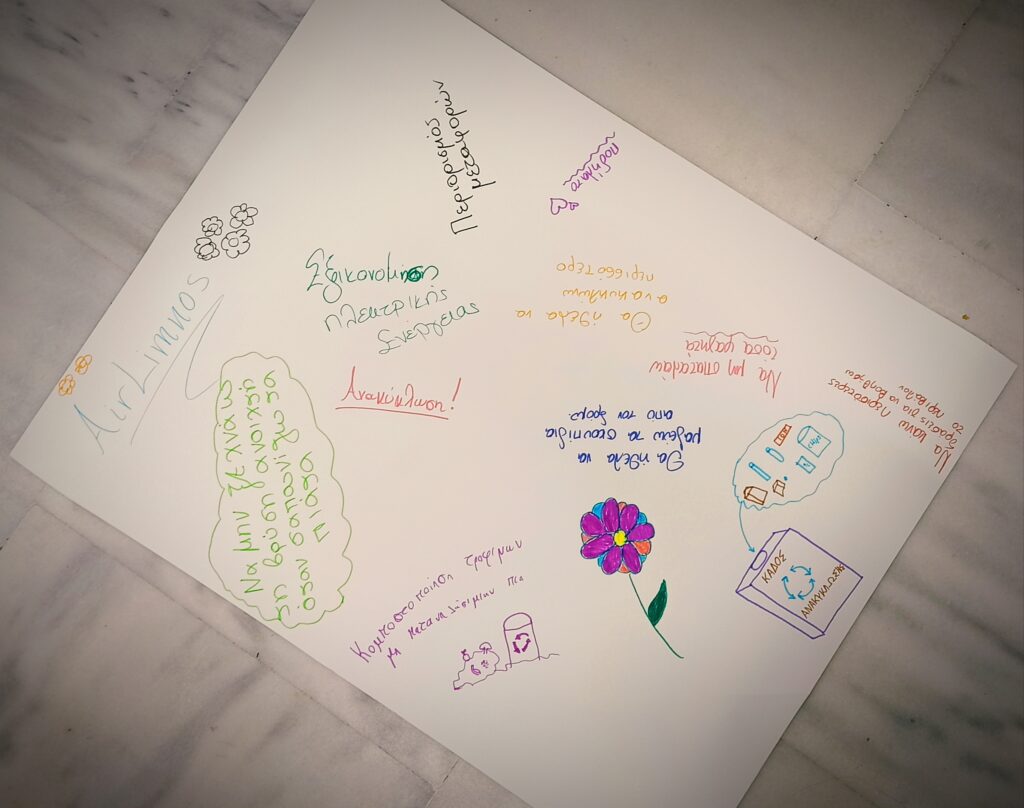 Περιορισμός
μεταφορών
ποδήλατο
AirLimnos
Εξικονόμηση
ηλεκτρικής
Ενέργειας
Θα ήθελα να
ανακυκλώνω
περισσότερο
Να μη σπαταλάω
τόσα φαγητά
Ανακύκλωση!
Να κάνω περισσότερες
δράσεις για να βοηθήσω
το περιβάλλον
Να μην ξεχνάω
τη βρύση ανοιχτή
όταν σαπωνίζω τα
πιάτα
Θα ήθελα να
μαζεύω τα σκουπίδια
από τον δρόμο
Κομποστοποίηση τροφίμων
μη καταναλώσιμων πια
ΚΑΔΟΣ
ΑΝΑΚΥΚΛΩΣΗΣ